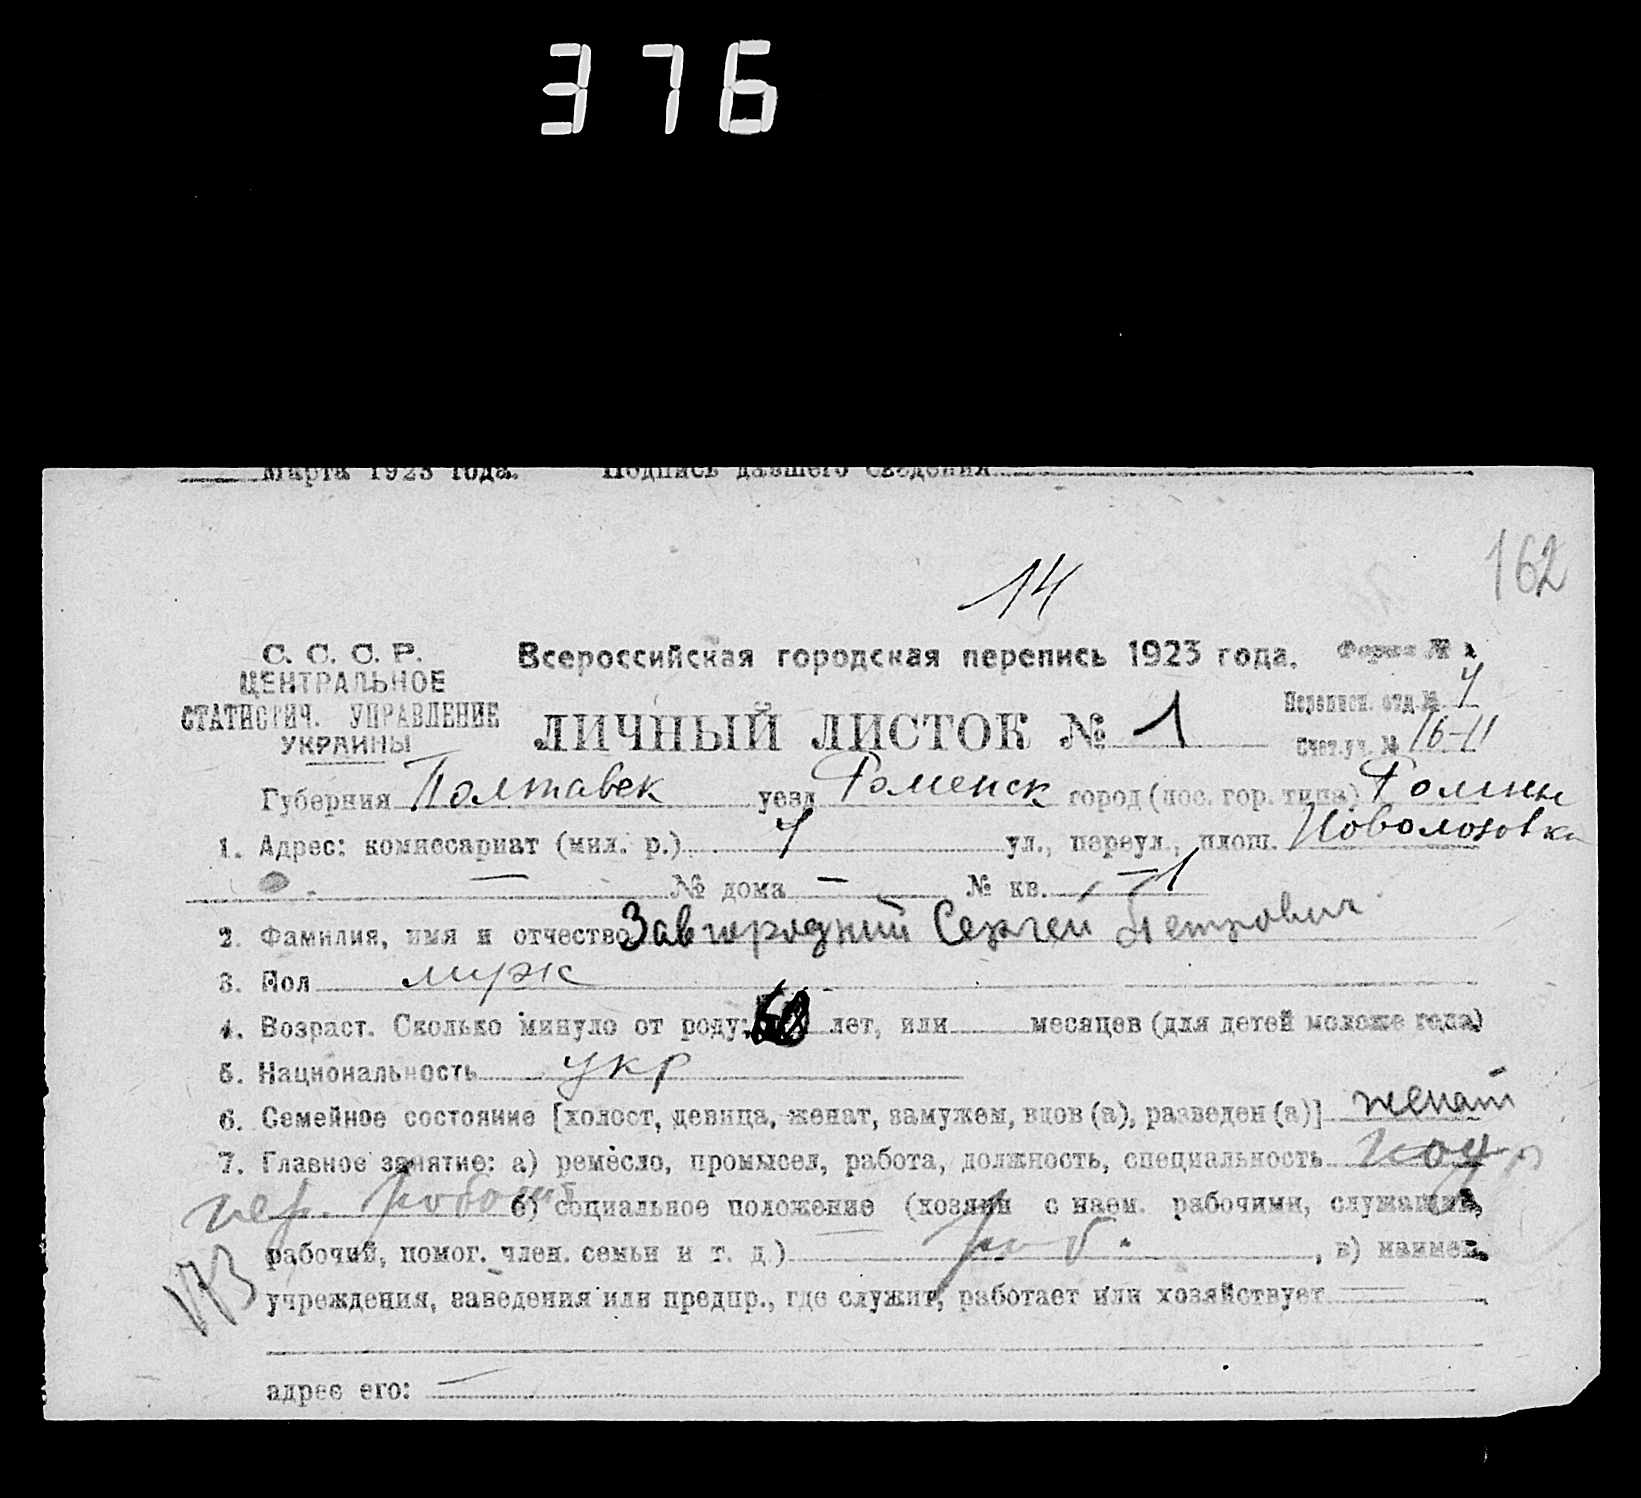 376
Марта 1923 года. Подпись давшего сведения
162
14
С. С. С. Р.
ЦЕНТРАЛЬНОЕ
СТАТИСТИЧ. УПРАВЛЕНИЕ
УКРАИНЫ
Всероссийская городская перепись 1923 года.
Форма №
ЛИЧНЫЙ ЛИСТОК № 1
Переписн. отд. № 4
Счет. уч. № 16-11
Губерния Полтавск уезд Роменск город (пос. гор. типа) Ромны
1. Адрес: комиссариат (мил. р.) 4 ул., переул., площ.
— № дома — № кв. — 1
2. Фамилия, имя и отчество Завгородний Сергей Петрович
3. Пол муж
4. Возраст. Сколько минуло от роду: лет, или месяцев (для детей моложе года)
5. Национальность укр
6. Семейное состояние [холост, девица, женат, замужем, вдов (а), разведен (а)] женат
7. Главное занятие: а) ремесло, промысел, работа, должность, специальность
б) социальное положение (хозяин с наем. рабочими, служащий,
рабочий, помог. член. семьи и т. д.) раб. , в) наимен.
учреждения, заведения или предпр., где служит, работает или хозяйствует —
адрес его: —